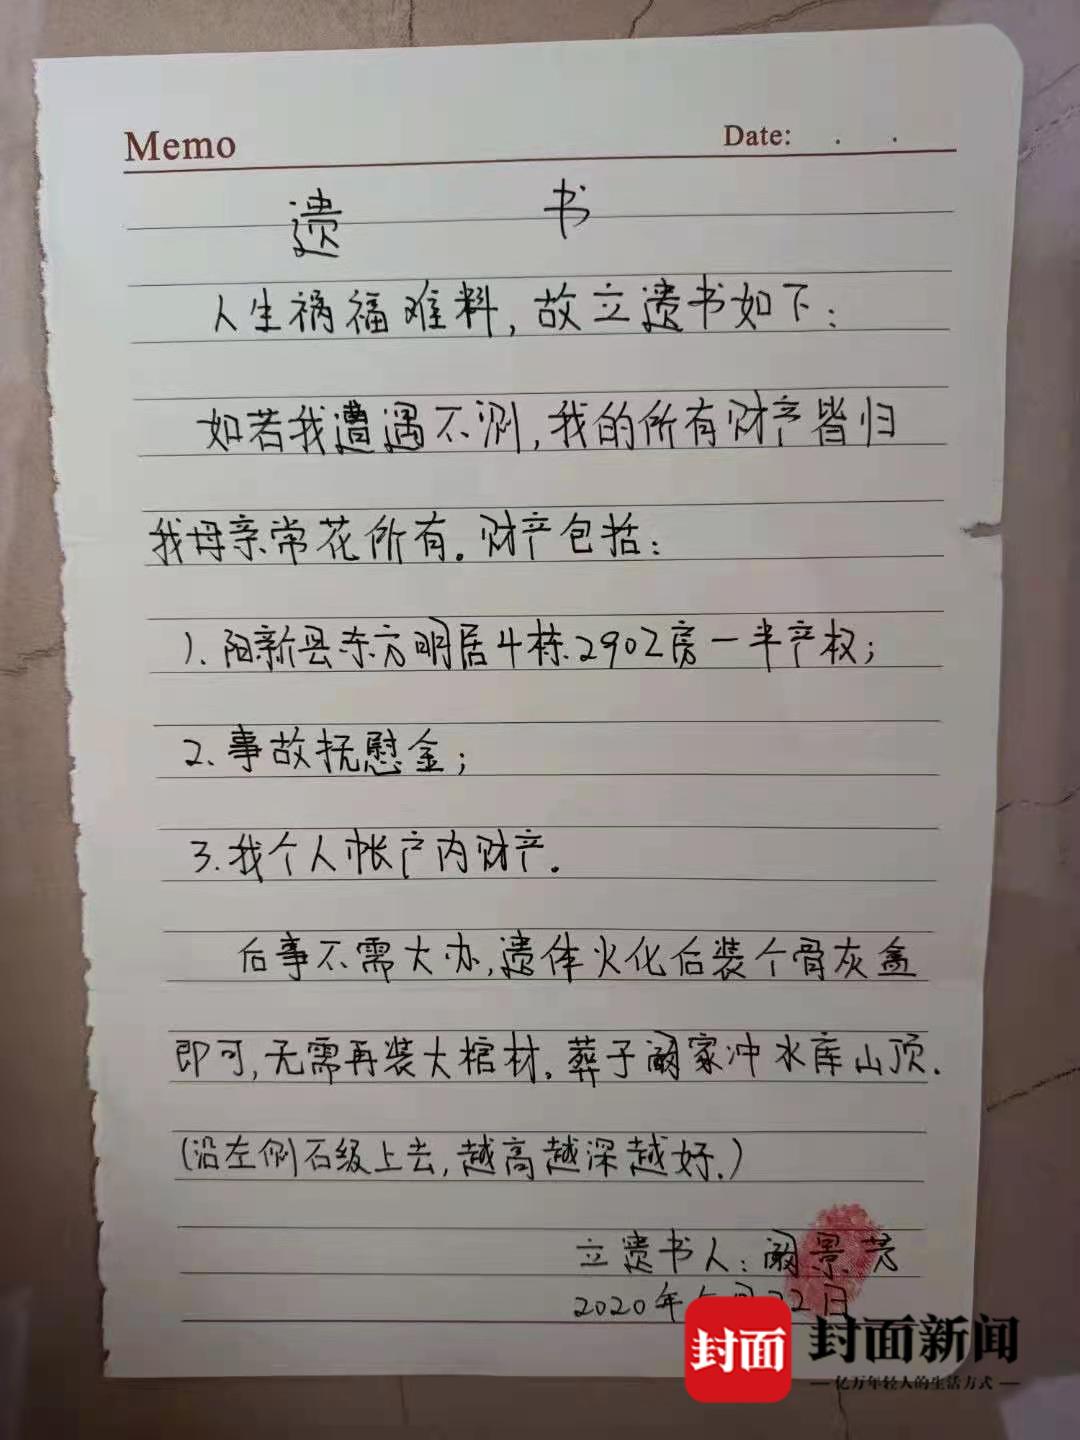 Memo Date: . .
遗 书
人生祸福难料,故立遗书如下:
如若我遭遇不测,我的所有财产皆归
我母亲常花所有。财产包括:
1.阳新县东方明居4栋2902房一半产权;
2.事故抚慰金;
3.我个人帐户内财产。
后事不需大办,遗体火化后装个骨灰盒
即可,无需再装大棺材。葬于阚家冲水库山顶.
(沿左侧石级上去,越高越深越好.)
立遗书人:阚景芳
2020年 月22日
封面 封面新闻
亿万年轻人的生活方式